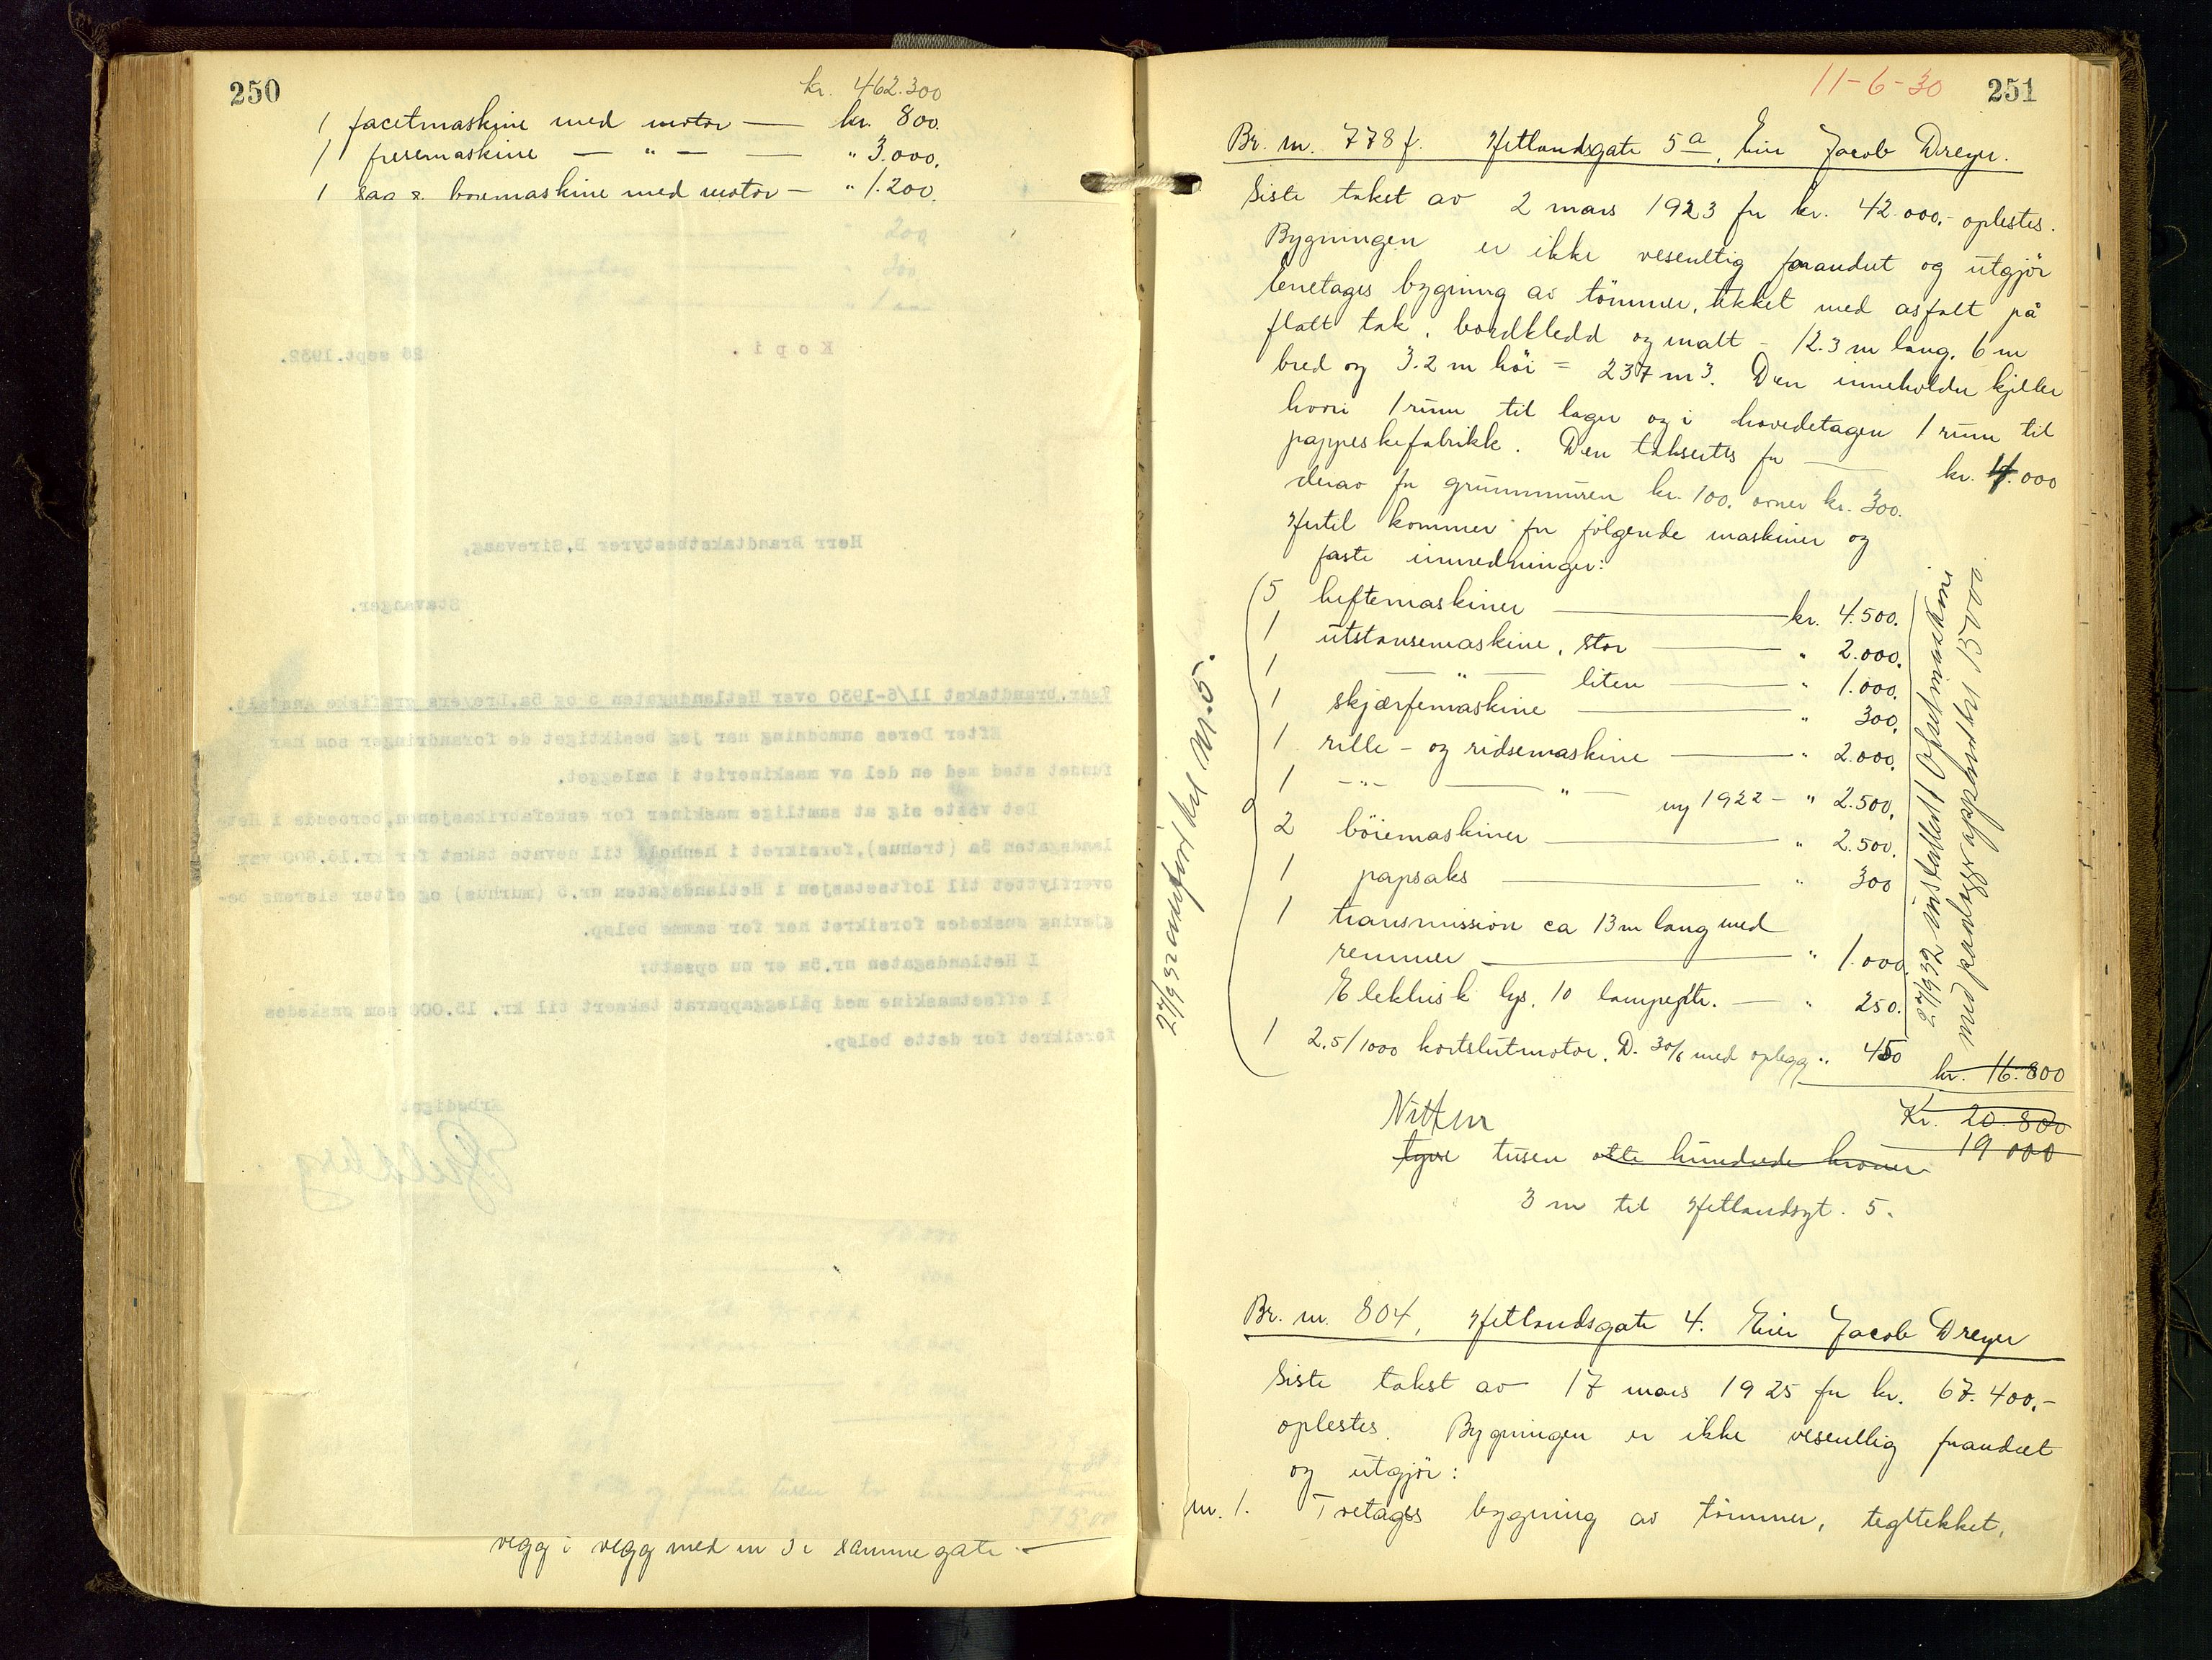 250
kr. 462.300
1 facetmaskine med motor — kr. 800.
1 fresemaskine — " — — " 3.000.
1 sag & boremaskine med motor — " 1.200.
Kopi.
26 sept. 1932.
Herr Brandtakstbestyrer B. Sirevaag,
Stavanger.
Vedr. brandtakst 11/6-1930 over Hetlandsgaten 5 og 5a, Dreyers grafiske Anstalt.
Efter Deres anmodning har jeg besiktiget de forandringer som har
funnet sted med en del av maskineriet i anlegget.
Det viste sig at samtlige maskiner for eskefabrikasjonen, beroende i Het-
landsgaten 5a (trehus), forsikret i henhold til nevnte takst for kr. 16.800 var
overflyttet til loftsetasjen i Hetlandsgaten nr. 5 (murhus) og efter eierens be-
gjering ønskedes forsikret her for samme beløp.
I Hetlandsgaten nr. 5a er nu opsatt:
1 offsetmaskine med påleggapparat taksert til kr. 15.000 som ønskedes
forsikret for dette beløp.
Ærbødigst
vegg i vegg med nr 3 i samme gate. —
11-6-30 251
Br. nr. 778 f. Hetlandsgate 5a, Eier Jacob Dreyer.
Siste takst av 2 mars 1923 for kr. 42.000.- oplestes.
Bygningen er ikke vesentlig forandret og utgjör
Enetages bygning av tömmer, tekket med asfalt på
flatt tak, bordkledd og malt - 12.3 m lang, 6 m
bred og 3.2 m höi = 237 m3. Den inneholder kjeller
hvori 1 rum til lager og i hovedetagen 1 rum til
pappeskefabrikk. Den takseres for — kr. 4.000
derav for grunnmuren kr. 100, ovner kr. 300.
Hertil kommer for fölgende maskiner og
faste innredninger:
5 heftemaskiner — kr. 4.500.
1 utstansemaskine, stor — " 2.000.
1 — " — liten — " 1.000.
1 skjærfemaskine — " 300.
1 rille- og ridsemaskine — " 2.000.
1 -"- — " — ny 1922 - " 2.500.
2 böiemaskiner — " 2.500.
1 papsaks — " 300
1 transmission ca 13 m lang med
remmer — " 1.000.
Elektrisk lys, 10 lampepkt. — " 250.
1 2.5/1000 kortslutmotor, D. 30/6 med oplegg " 450
kr. 16.800
27/9 32 overført til Nr. 5.
27/9 32 installert 1 Ofsetmaskine
med påleggerapparat kr 15000.
Kr. 20.800
19 000
Nitten
tyve tusen otte hundrede kroner
3 m til Hetlandsgt. 5.
Br. nr. 804, Hetlandsgate 4. Eier Jacob Dreyer
Siste takst av 17 mars 1925 for kr. 67.400.-
oplestes. Bygningen er ikke vesentlig forandret
og utgjör:
nr. 1. Toetages bygning av tömmer, tegltekket,